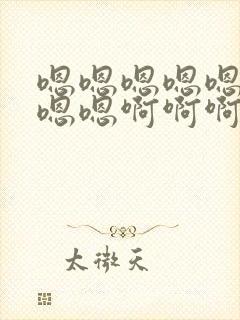 嗯嗯嗯嗯嗯
嗯嗯啊啊啊
太微天